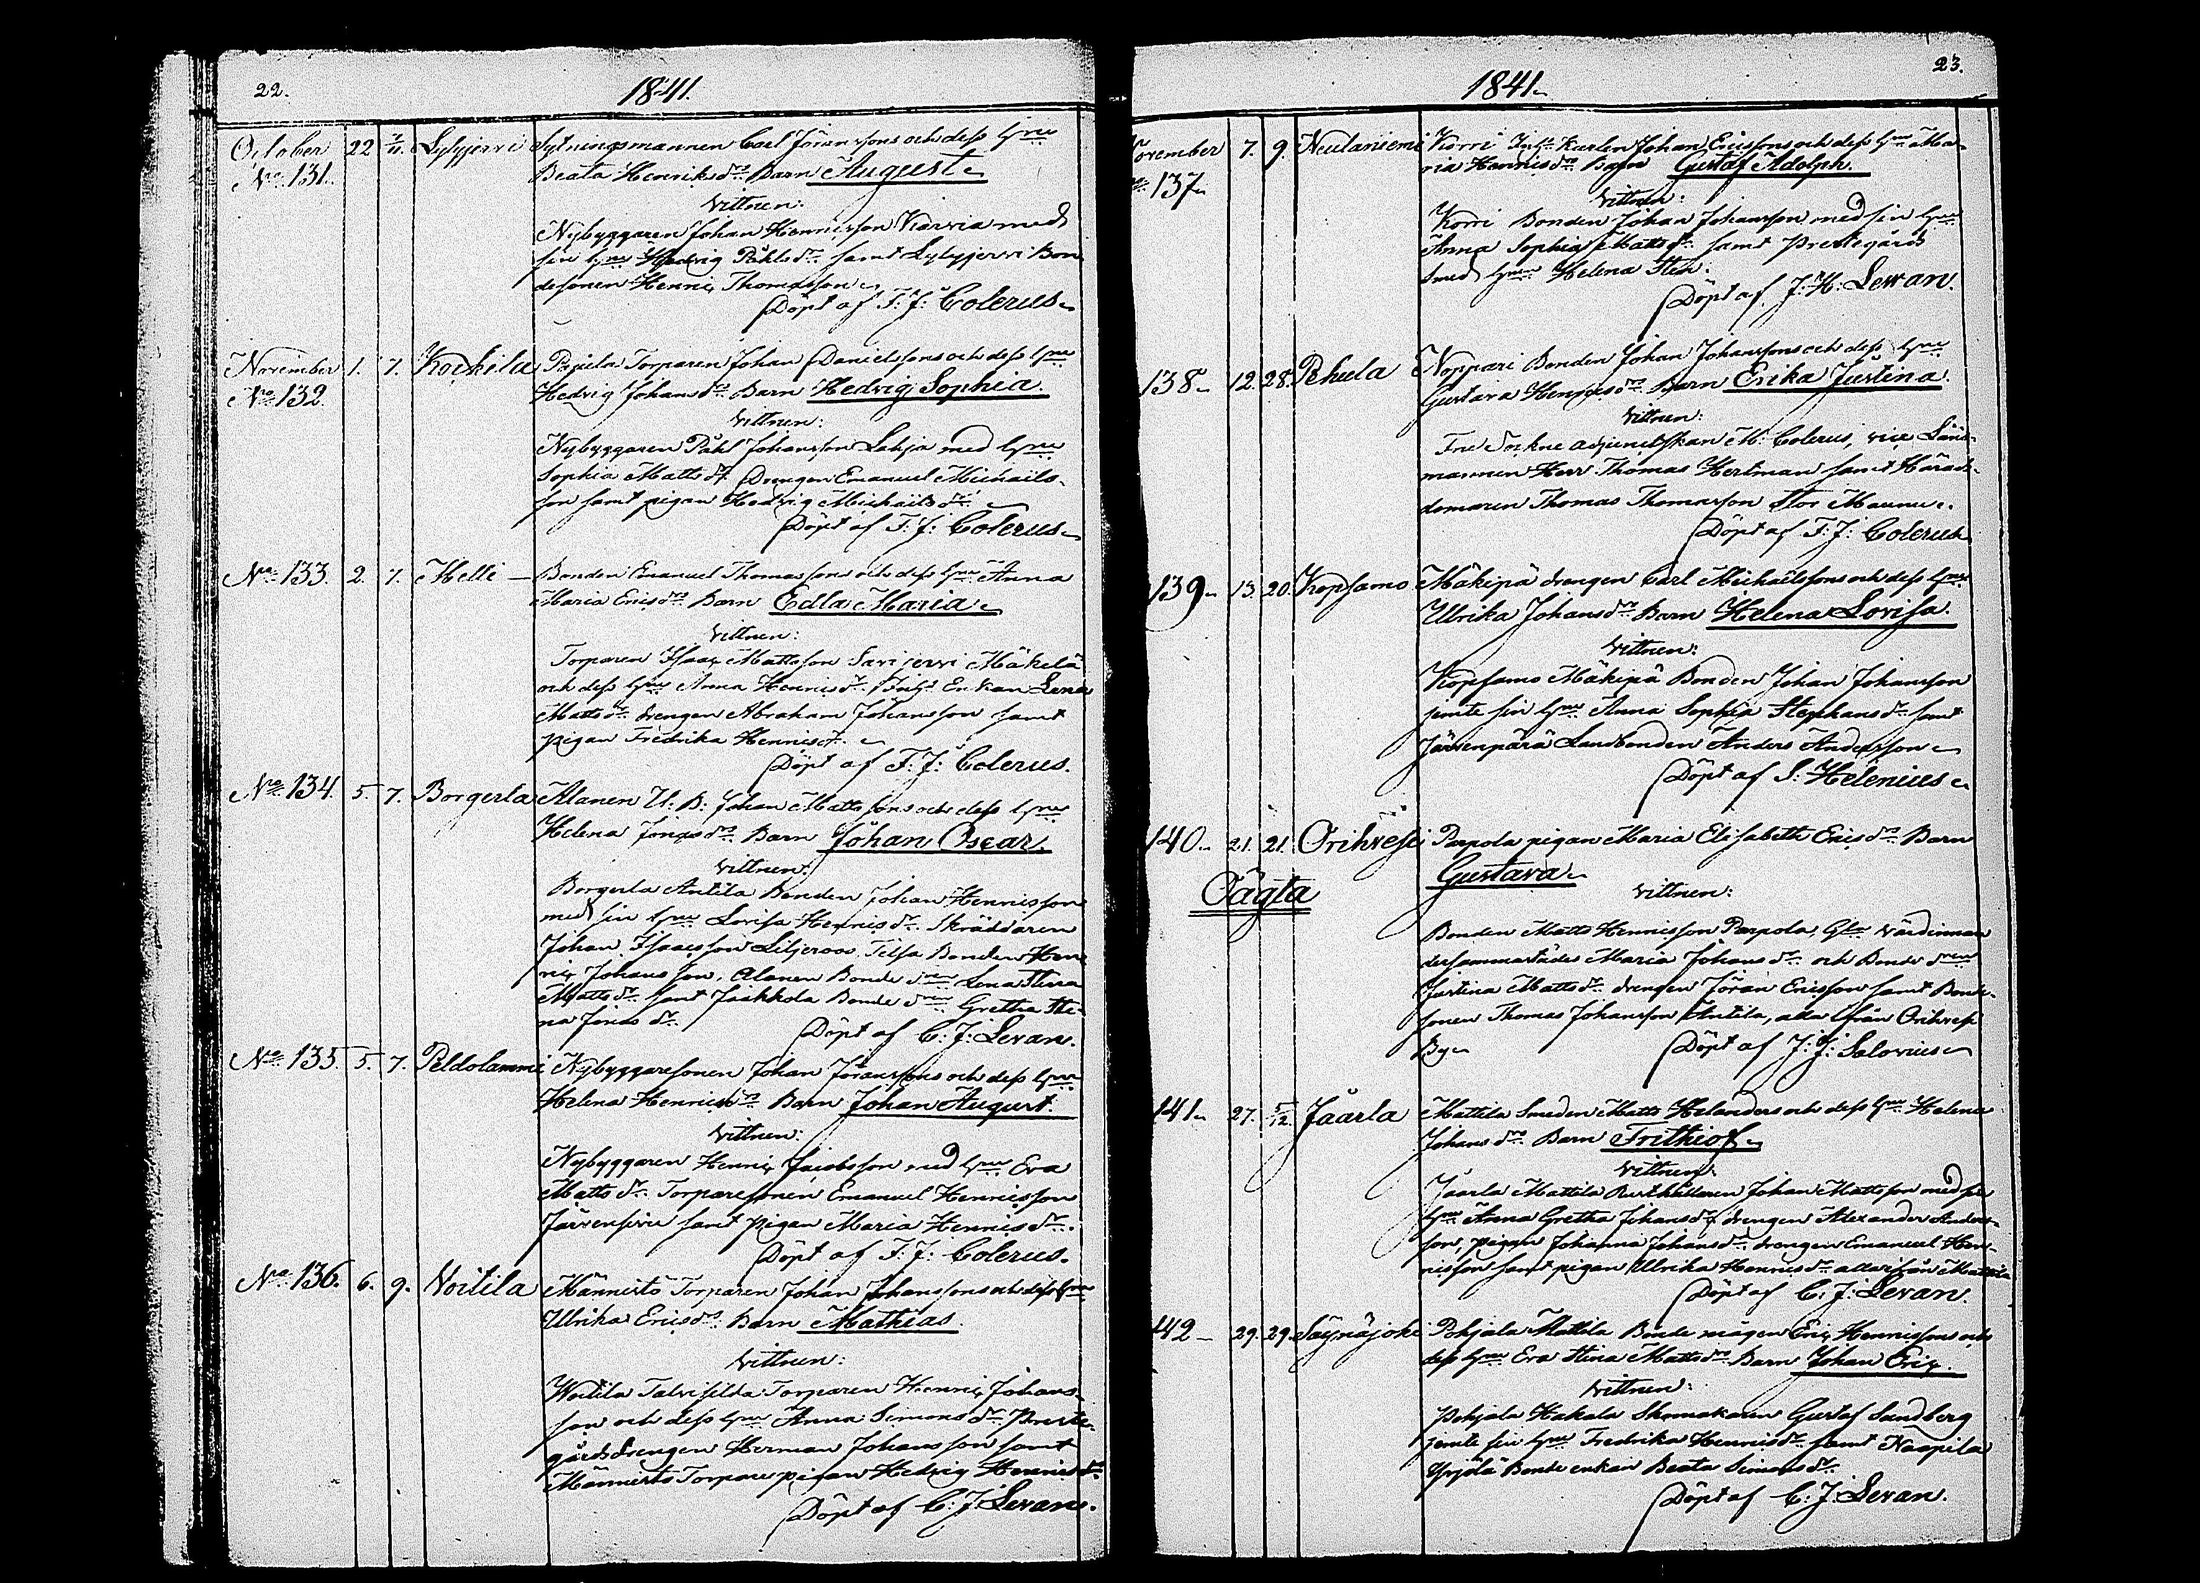 22.
1841.
October 22 7/11. Lylyjerri Sytningsmannen Carl Jöranssons och dess Hru
No 131. Beata Henriksdrs Barn August
Vittnen:
Nybyggaren Johan Henricsson Karvia med
sin Hru Hedvig Påhlsdr samt Lylyjerri Bon
desonen Henric Thomasson
Döpt af F: J: Colerus
November 1. 7. Koskila Pajula Torparen Johan Danielssons och dess Hru
No 132. Hedvig Johansdrs Barn Hedvig Sophia.
Vittnen:
Nybyggaren Påhl Johansson med Hru
Sophia Mattsdr Drengen Emanuel Michaëls-
son samt pigan Hedvig Michaëlsdr
Döpt af F: J: Colerus
No 133. 2. 7. Helli Bonden Emanuel Thomassons och dess Hru Anna
Maria Ericsdrs Barn Edla Maria
Vittnen:
Torparen Isaac Mattsson Savijerri Mäkelä
och dess Hru Anna Henricsdr Enkan Lena
Mattsdr drengen Abraham Johansson samt
pigan Fredrika Henricsdr
Döpt af F: J: Colerus.
No 134. 5. 7. Borgerla Alanen U: B: Johan Mattssons och dess Hru
Helena Jonasdrs Barn Johan Oscar.
Vittnen:
Borgerla Antila Bonden Johan Henricsson
med sin Hru Lovisa Henricsdr Skräddaren
Johan Isaacsson Liljeroos, Bonden Hen
ric Johansson, Alanen Bonde Lena Stina
Mattsdr samt Jaakkola Bonde Gretha Sti-
na Jonasdr
Döpt af C: J: Levan.
No 135. 5. 7. Peldolammi Nybyggaresonen Johan Jöranssons och dess Hru
Helena Henricsdrs Barn Johan August.
Vittnen:
Nybyggaren Henric Jacobsson med Hru Eva
Mattsdr Torparesonen Emanuel Henricsson
samt pigan Maria Henricsdr
Döpt af F: J: Colerus.
No 136. 6. 9. Voitila Männistö Torparen Johan Johanssons och dess Hru
Ulrika Ericsdrs Barn Mathias.
Vittnen:
Woitila Torparen Henric Johans-
son och dess Hru Anna Simonsdr Preste-
gårds drengen Herman Johansson samt
Männistö Torpare pigan Hedvig Henricsdr
Döpt af C: J: Levan.
23.
1841
November 7. 9. Neulaniemi Korri Johan Ericssons och dess Hru Ma-
No 137 ria Henricsdrs Barn Gustaf Adolph.
Vittnen:
Korri Bonden Johan Johansson med sin Hru
Anna Sophia Mattsdr samt Prestegårds
smeds Hru Helena Sten:
Döpt af J: H: Lewan.
138 12. 28. Pehula Noppari Bonden Johan Johanssons och dess Hru
Gustava Henricsdrs Barn Erika Justina.
Vittnen:
Fru Sockne adjunctskan M: Colerus, vice Läns-
mannen Herr Thomas Hertman samt Härads-
domaren Thomas Thomasson Stor Maunu.
Döpt af F: J: Colerus
139 13. 20. Kopsamo Mäkipä drengen Carl Michaëlssons och dess Hru
Ulrika Johansdrs Barn Helena Lovisa.
Vittnen:
Kopsamo Mäkipä Bonden Johan Johansson
jemte sin Hru Anna Sophia Stephansdr samt
Järvenpärä Landbonden Anders Andersson
Döpt af S: Helenius
140 21. 21. Orihvesi Parpola pigan Maria Elisabeth Ericsdrs Barn
Oägta Gustava
Vittnen:
Bonden Matts Henricsson Parpola, värdinnan
dersammastädes Maria Johansdr och Bonde
Justina Mattsdr drengen Jöran Ericsson samt Bonde-
sonen Thomas Johansson Antila, alla ifrån Orihvesi
By
Döpt af J: J: Salovius
141 27. 5/12. Jäärla Mattila Smeden Matts Helanders och dess Hru Helena
Johansdrs Barn Frithiof
Vittnen:
Jäärla Mattila Rusthållaren Johan Mattsson med sin
Hru Anna Gretha Johansdr drengen Alexander Anders-
son, pigan Johanna Johansdr drengen Emanuel Hen-
ricsson samt pigan Ulrika Henricsdr alla ifrån Mattila
Döpt af C: J: Levan.
142 29. 29. Säynäjoki Pohjala Mattila Bonde mågen Eric Henricssons och
dess Hru Eva Stina Mattsdrs Barn Johan Eric.
Vittnen:
Pohjala Hakala Skomakaren Gustaf Sandberg
jemte sin Hru Fredrika Henricsdr samt Naapila
Yrjölä Bonde enkan Beata Simonsdr
Döpt af C: J: Levan.